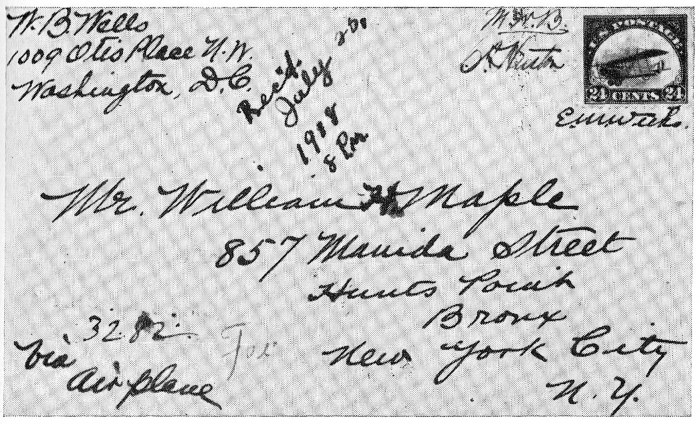 W. B. Wells
1009 Otis Place N.W.
Washington, D.C.
Rec'd.
July
1918
8 P.M.
M. & B.
U.S. POSTAGE
24 CENTS 24
Mr. William H. Maple
857 Manida Street
Hunts Point
Bronx
New York City
N.Y.
3282
Via
Air plane